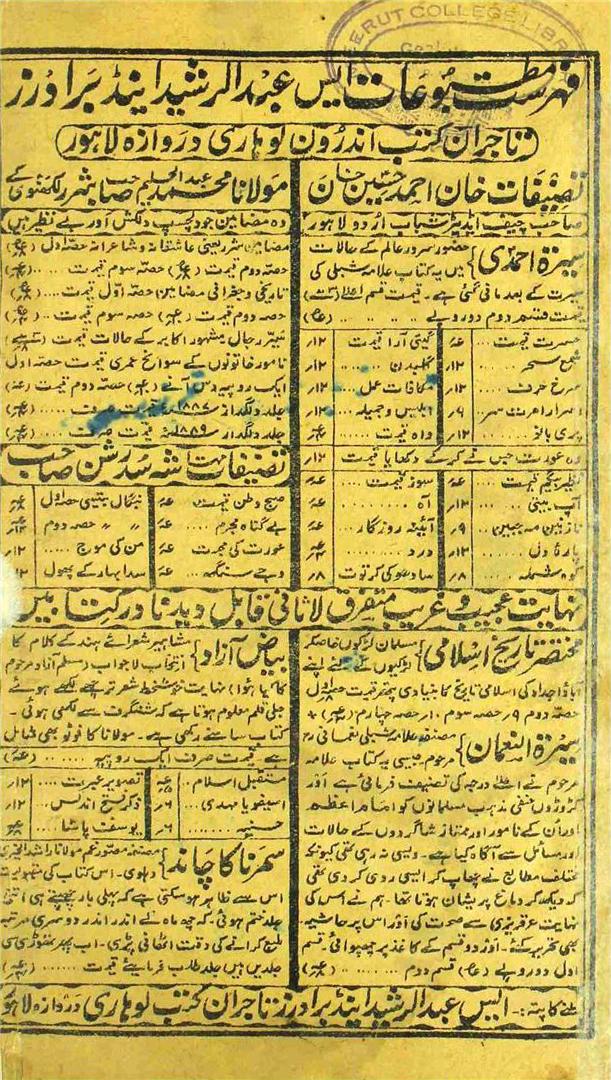 MEERUT COLLEGE LIBRARY
فہرست مطبوعات ایس عبدالرشید اینڈ برادرز
تاجران کتب اندرون لوہاری دروازہ لاہور
تصنیفات خان احمد حسین خان
صاحب چیف ایڈیٹر شباب اردو لاہور
سیرۃ احمدی} حضور سرور عالم کے حالات
میں یہ کتاب علامہ شبلی کی
سیرت کے بعد مانی گئی ہے۔ قیمت قسم اعلیٰ
قیمت قسم دوم دو روپے
حسرت قیمت
گیتی آرا قیمت ۱۲؍
شمع سحر ۱۲؍
گلبدن ۱۲؍
سرخ حرف ۱۲؍
مکافات عمل ۱۲؍
۹؍ ابلیس و جمیلہ ۱۲؍
۱۲؍ واہ قیمت
وہ عورت جس نے کر کے دکھایا قیمت ۱۲؍
سوز قیمت
آپ بیتی ۱۲؍
آہ
نازنین مہ جبین ۹؍
آئینہ روزگار
پارۂ دل ۱۲؍
درد
۸؍ سادھو کی کرتوت ۸؍
مولانا محمد عبدالحلیم صاحب شرر لکھنوی کے
وہ مضامین جو دلچسپ دلکش اور بے نظیر ہیں
مضامین شرر یعنی عاشقانہ و شاعرانہ حصہ اول
حصہ دوم قیمت حصہ سوم قیمت
تاریخی و جغرافی مضامین حصہ اول قیمت
حصہ دوم قیمت حصہ سوم قیمت
سیر رجال مشہور اکابر کے حالات قیمت
نامور خاتونوں کے سوانح عمری قیمت حصہ اول
ایک روپیہ دس آنے حصہ دوم قیمت
جلد دلگداز ۱۸۸۷ء قیمت صرف
جلد دلگداز ۱۸۸۹ء قیمت صرف
تصنیفات مہاشہ سدرشن صاحب
صبح وطن قیمت
بنگال بتیسی حصہ اول
بے گناہ مجرم
〃 〃 حصہ دوم
عورت کی محبت
من کی موج ۱۲؍
وجے سنگھ
سدا بہار کے پھول ۱۲؍
نہایت عجیب و غریب متفرق لاثانی قابل دید نادر کتابیں
مختصر تاریخ اسلامی} مسلمان لڑکوں خاصکر
لڑکیوں کے لئے اپنے
آباؤ اجداد کی اسلامی تاریخ کا بنیادی پتھر قیمت حصہ اول
حصہ دوم ۹؍ حصہ سوم ۱۰؍ حصہ چہارم
سیرۃ النعمان} مصنفہ علامہ شبلی نعمانی
مرحوم جیسی یہ کتاب علامہ
مرحوم نے اعلیٰ درجہ کی تصنیف فرمائی ہے اور
کروڑوں حنفی مذہب مسلمانوں کو امام اعظم
اور ان کے نامور اور ممتاز شاگردوں کے حالات
اور مسائل سے آگاہ کیا ہے۔ ویسی نہ رہی تھی کیونکہ
مختلف مطابع نے چھاپ کر ایسی ردی کر دی تھی
کہ دیکھکر دماغ پریشان ہوتا تھا۔ ہم نے اس کی
نہایت عرقریزی سے صحت کی اور اس پر حاشیہ
بھی تحریر کئے۔ اور دو قسم کے کاغذ پر چھپوائی۔ قسم
اول دو روپے قسم دوم
بیاض آزاد} مشاہیر شعرائے ہند کے کلام کا
انتخاب لاجواب (مسلم آزاد مرحوم
کا کیا ہوا) نہایت خوشخط شعر ترچھے لکھے ہوئے
جلی قلم معلوم ہوتا ہے کہ شنگرف سے لکھی ہوئی
کتاب سامنے رکھی ہے۔ مولانا کا فوٹو بھی شامل
ہے قیمت صرف ایک روپیہ
مستقبل اسلام
تصویر عبرت ۱۲؍
اسیفو یا مہدی ۶؍
ذکر فتح اندلس ۱۲؍
۶؍ یوسف پاشا
سمرنا کا چاند} مصنفہ مصور غم مولانا راشد الخیری
دہلوی۔ اس کتاب کی مقبولیت
اس سے ظاہر ہو سکتی ہے کہ پہلی بار چھپتے ہی اتنی
جلد ختم ہوئی۔ کہ چھ ماہ کے اندر اندر دوسری مرتبہ
طبع کرانے کی دقت اٹھانی پڑی۔ اب پھر تھوڑی سی
جلدیں ہیں جلد طلب فرمایئے قیمت
ملنے کا پتہ:۔ ایس عبدالرشید اینڈ برادرز تاجران کتب لوہاری دروازہ لاہور